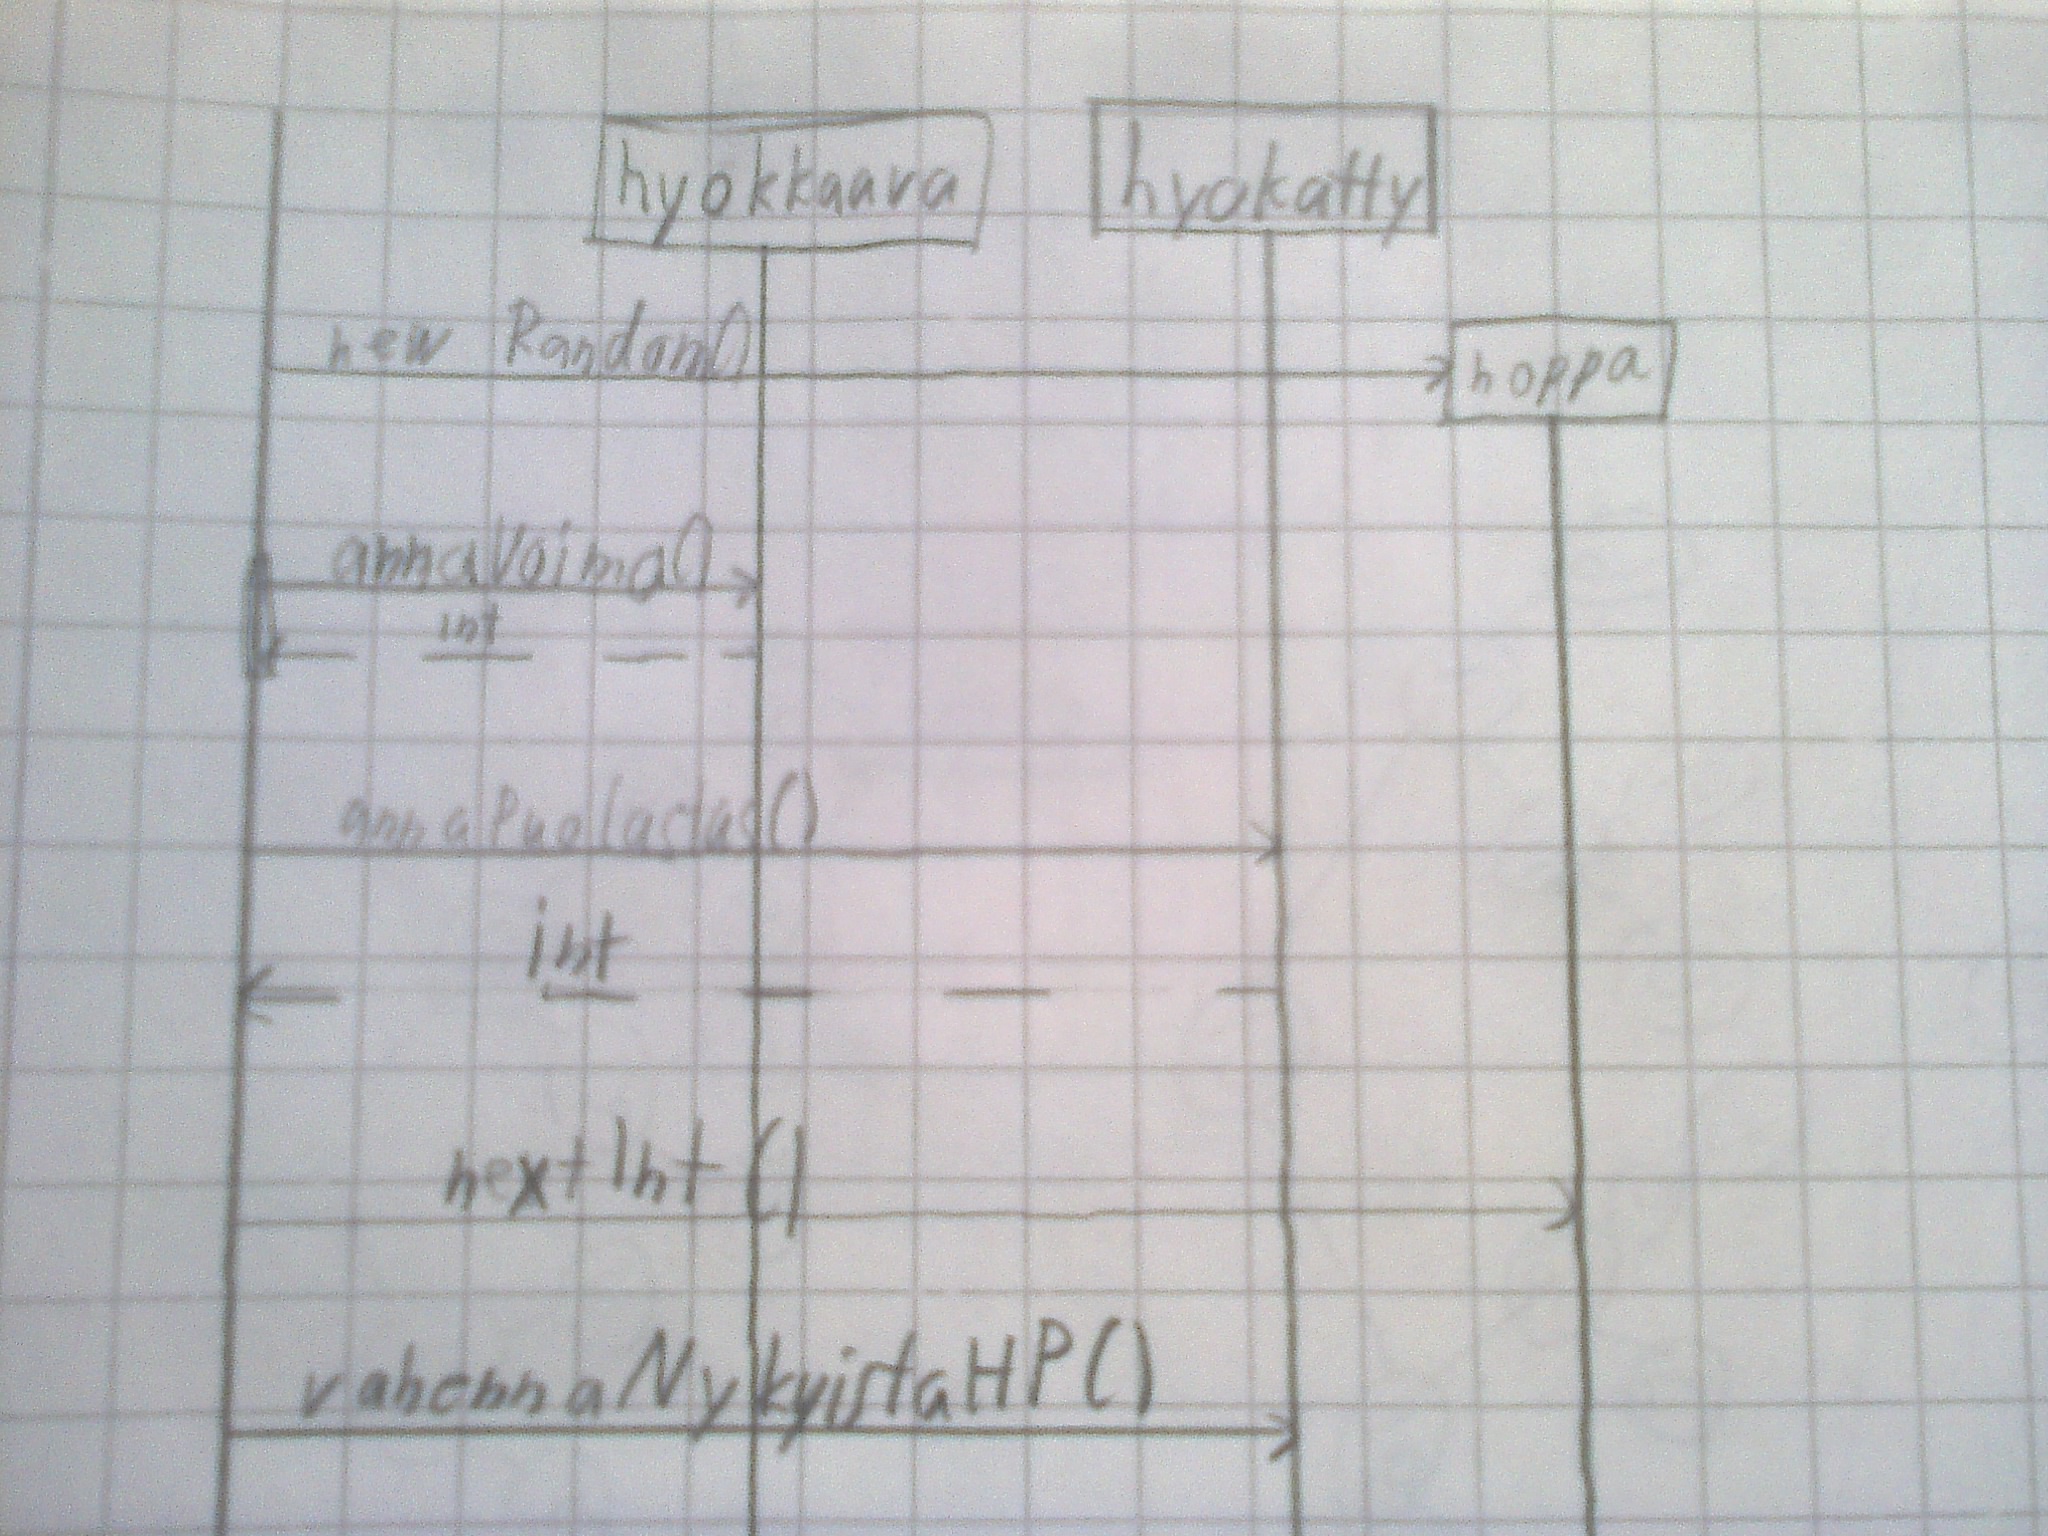 hyokkaava
hyokatty
new Random()
hoppa
annaVoima()
int
annaPuolastus()
int
nextInt()
vahennaNykyistaHP()